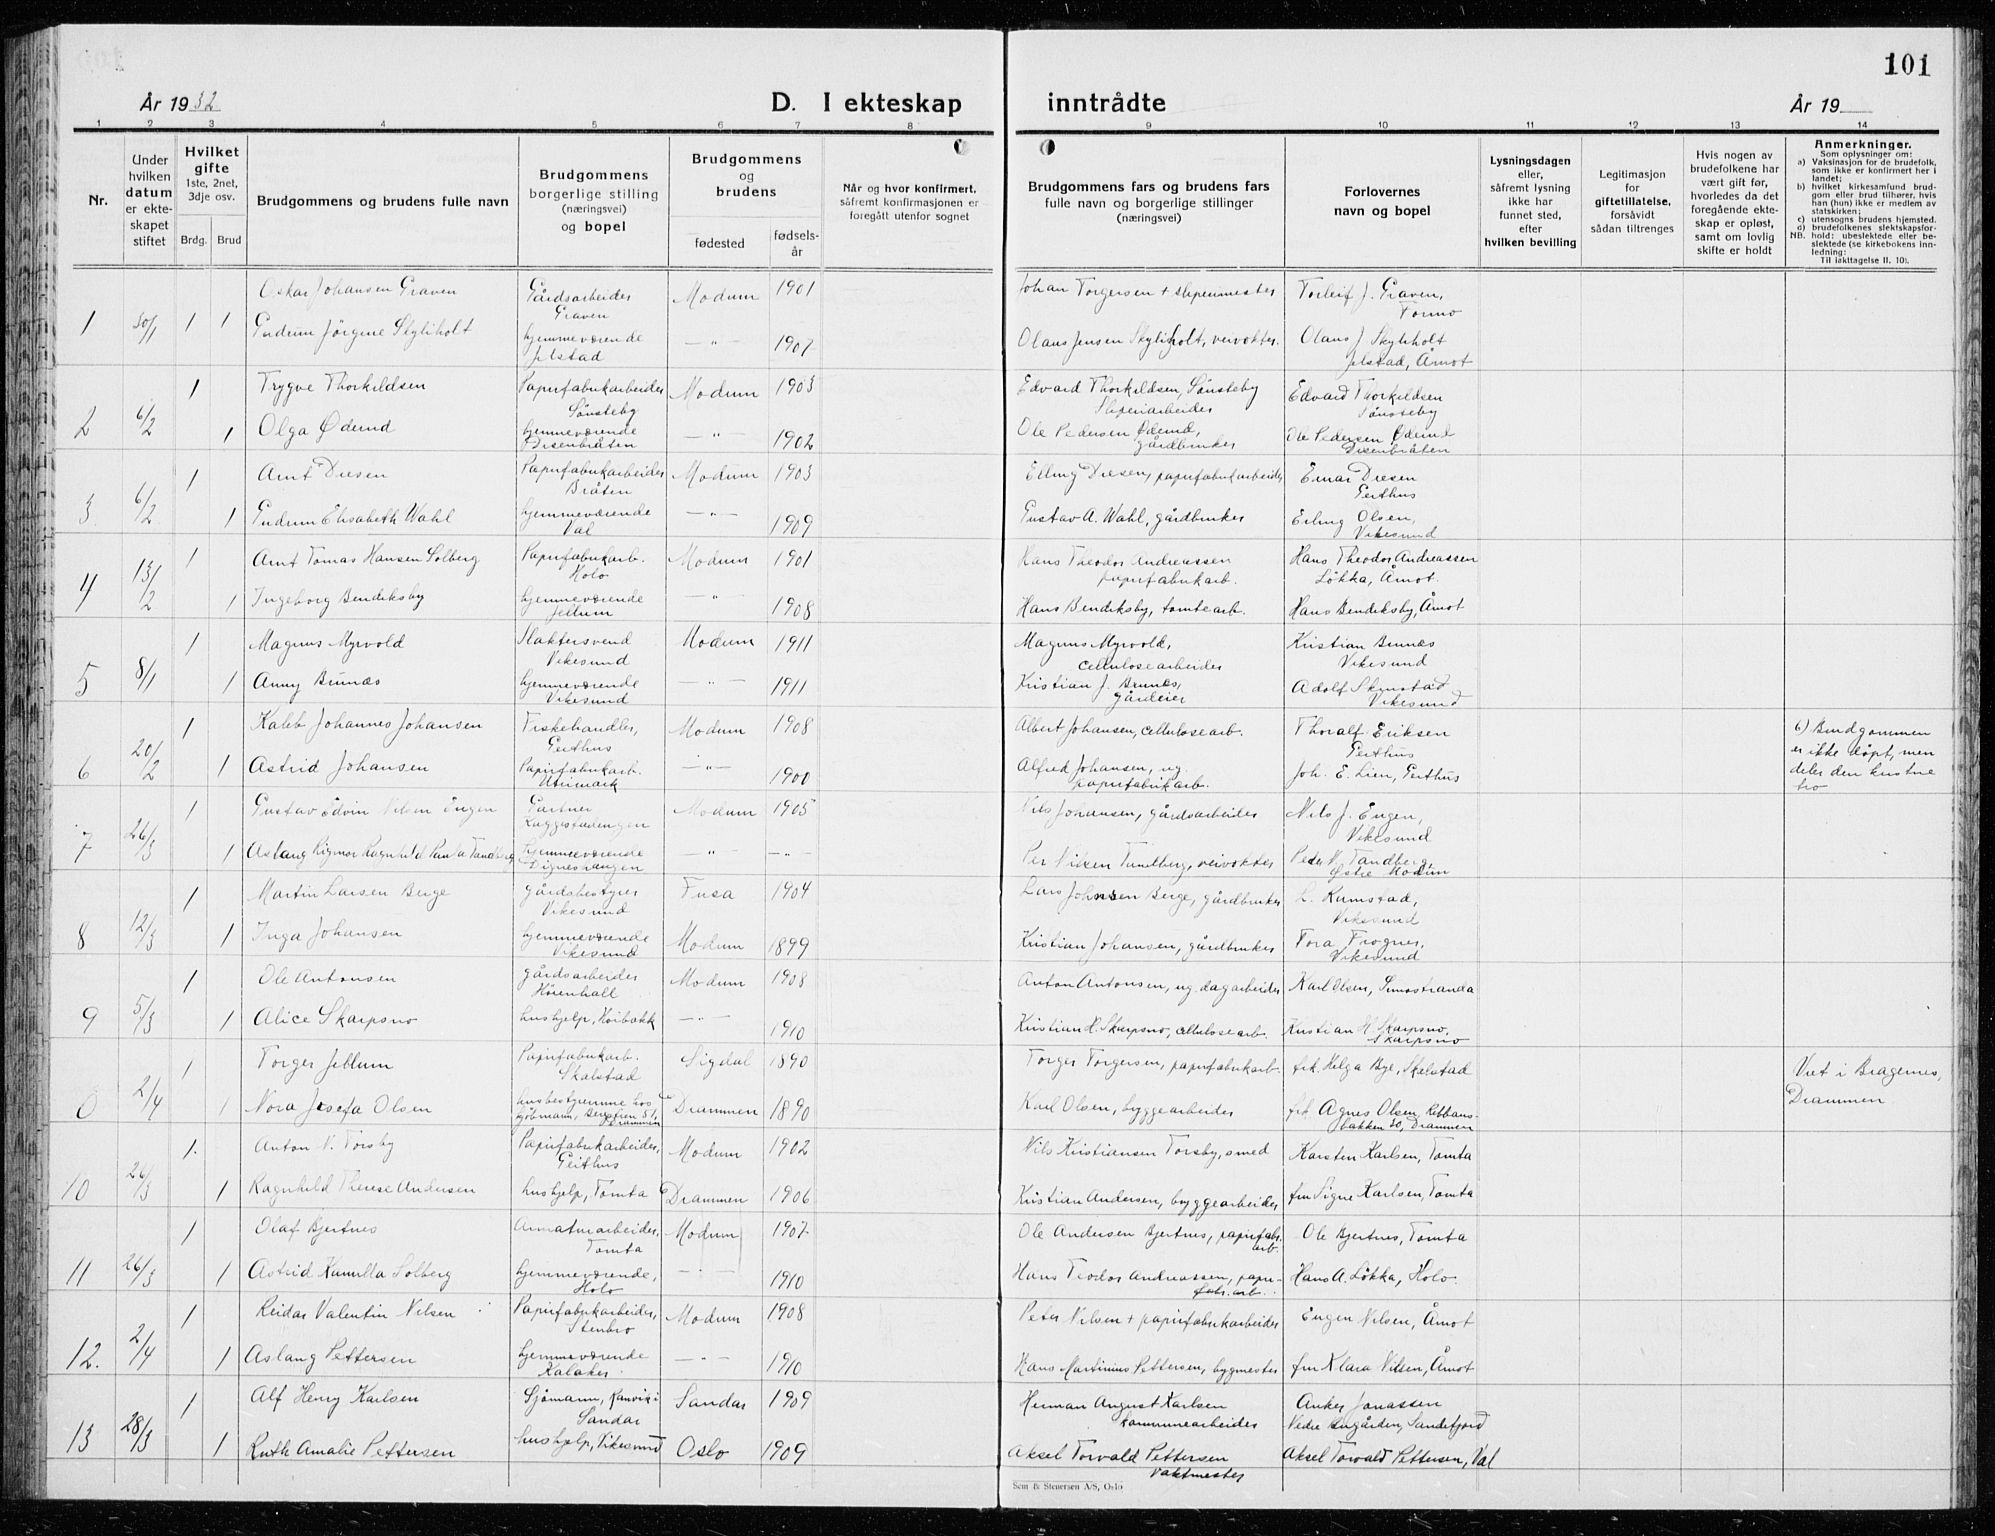 101
År 1932
D. I ekteskap
inntrådte
År 19
1 2 3 4 5 6 7 8 9 10 11 12 13 14
Nr.
Under hvilken datum er ekteskapet stiftet
Hvilket gifte
1ste, 2net, 3dje osv.
Brdg. Brud
Brudgommens og brudens fulle navn
Brudgommens borgerlige stilling (næringsvei) og bopel
Brudgommens og brudens
fødested
fødselsår
Når og hvor konfirmert, såfremt konfirmasjonen er foregått utenfor sognet
Brudgommens fars og brudens fars fulle navn og borgerlige stillinger (næringsvei)
Forlovernes navn og bopel
Lysningsdagen eller, såfremt lysning ikke har funnet sted, efter hvilken bevilling
Legitimasjon for giftetillatelse, forsåvidt sådan tiltrenges
Hvis nogen av brudefolkene har vært gift før, hvorledes da det foregående ekteskap er opløst, samt om lovlig skifte er holdt
Anmerkninger.
Som oplysninger om:
a) Vaksinasjon for de brudefolk, som ikke er konfirmert her i landet;
b) hvilket kirkesamfund brudgom eller brud tilhører, hvis han (hun) ikke er medlem av statskirken;
c) utensogns brudens hjemsted.
d) brudefolkenes slektskapsforhold: ubeslektede eller beslektede (se kirkebokens innledning:
NB. Til iakttagelse II. 10).
1 30/1 1 1 Oskar Johansen Graven Gårdsarbeider Graven Modum 1901 Johan Torgersen + slipermester Torleif J. Graven, Formo
Gudrun Jörgine Skyliholt hjemmeværende Jelstad —"— 1907 Olaus Jensen Skyliholt, veivokter. Olaus J Skyliholt Jelstad, Åmot
2 6/2 1 Trygve Thorkildsen Papirfabrikarbeider Sönsteby Modum 1903 Edvard Thorkildsen, Sönsteby Sliperiarbeider Edvard Thorkildsen Sönsteby
1 Olga Ødemd hjemmeværende Disenbråten —"— 1902 Ole Pedersen Ødemd, gårdbruker Ole Pedersen Ødemd Disenbråten
3 6/2 1 Arnt Diesen Papirfabrikarbeider Bråten Modum 1903 Elling Diesen, papirfabrikarbeider Einar Diesen Geithus
1 Gudrun Elisabeth Wahl hjemmeværende Val —"— 1909 Gustav A. Wahl, gårdbruker Erling Olsen, Vikesund
4 13/2 1 Arnt Tomas Hansen Solberg Papirfabrikarb. Holo Modum 1901 Hans Theodor Andreassen papirfabrikarb. Hans Theodor Andreassen Løkka, Åmot.
1 Ingeborg Bendiksby hjemmeværende Jellum —"— 1908 Hans Bendiksby, tomtearb. Hans Bendiksby, Åmot
5 8/1 1 Magnus Myrvold Slaktersvend Vikesund Modum 1911 Magnus Myrvold, cellulosearbeider Kristian Brunes Vikesund
1 Anny Brunæs hjemmeværende Vikesund —"— 1911 Kristian J. Brunæs, gårdeier Adolf Skynstad Vikesund
6 20/2 1 Kaleb Johannes Johansen Fiskehandler, Geithus Modum 1908 Albert Johansen, cellulosearb. Thoralf Eriksen Geithus 6) Brudgommen er ikke döpt, men deler den kristne tro
1 Astrid Johansen Papirfabrikarb. Utrimark —"— 1900 Alfred Johansen, ug. papirfabrikarb. Joh. E. Lien, Geithus
7 26/3 1 Gustav Edvin Nilsen Engen Gartner Luggestadengen Modum 1905 Nils Johansen, gårdsarbeider Nils J. Engen, Vikesund
1 Aslaug Rigmor Ragnhild Paula Tandberg hjemmeværende —"— —"— Per Nilsen Tandberg, veivokter Peder N. Tandberg, Østre Modum
8 12/3 1 Martin Larsen Berge gårdsbestyrer Vikesund Fusa 1904 Lars Johnsen Berge, gårdbruker L. Rumstad, Vikesund
1 Inga Johansen hjemmeværende Vikesund Modum 1899 Kristian Johansen, gårdbruker Tora Frogner, Vikesund
9 5/3 1 Ole Antonsen gårdsarbeider Hörenhall Modum 1908 Anton Antonsen, ug. dagarbeider Karl Olsen, Simostranda
1 Alice Skarpsno hushjelp, Höibakk —"— 1910 Kristian H. Skarpsno, cellulosearb. Kristian H. Skarpsno, Skarpsno
0 2/4 1 Torger Jellum Papirfabrikarb. Skalstad Sigdal 1890 Torger Torgersen, papirfabrikarb. frk. Helga Bye, Skalstad Viet i Bragernes, Drammen
1 Nora Josefa Olsen husbestyrerinne hos kjöbmann, Bergstien 51, Drammen Drammen 1890 Karl Olsen, byggearbeider frk. Agnes Olsen, Rebbansbakken 20, Drammen
10 26/3 1. Anton N. Torsby Papirfabrikarbeider, Geithus Modum 1902 Nils Kristiansen Torsby, smed Karsten Karlsen, Tomta
1 Ragnhild Therese Andersen hushjelp, Tomta Drammen 1906 Kristian Andersen, byggearbeider fru Signe Karlsen, Tomta
11 26/3 1 Olaf Bjertnes Armaturarbeider, Tomta Modum 1907 Ole Andersen Bjertnes, papirfabr. arb. Ole Bjertnes, Tomta
1 Astrid Kamilla Solberg hjemmeværende, Holo —"— 1910 Hans Teodor Andreassen, papirfabr. arb. Hans A. Løkka, Holo.
12. 2/4 1 Reidar Valentin Nilsen Papirfabrikarbeider, Stenbro Modum 1908 Peter Nilsen + papirfabrikarbeider Eugen Nilsen, Åmot
1 Aslaug Pettersen hjemmeværende Kalaker —"— 1910 Hans Martinius Pettersen, bygmester fru Klara Nilsen, Åmot
13 28/3 1 Alf Henry Karlsen Sjömann, Ranvik i Sandar Sandar 1909 Herman August Karlsen kommunearbeider Anker Jonassen Nedre Engården, Sandefjord
1 Ruth Amalie Pettersen hushjelp, Vikesund Oslo 1909 Aksel Torvald Pettersen vaktmester Aksel Torvald Pettersen, Val
Sem & Stenersen A/S, Oslo